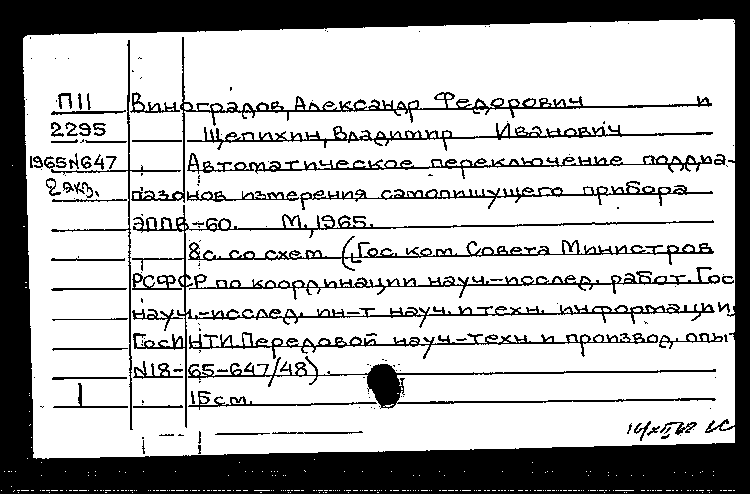 П11 Виноградов, Александр Федорович и
2295 Щепихин, Владимир Иванович
1965N647 Автоматическое переключение поддиа-
2 экз. пазонов измерения самопишущего прибора
ЭППВ-60. М., 1965.
8с. со схем. (Гос. ком. Совета Министров
РСФСР по координации науч.-исслед. работ. Гос
науч.-исслед. ин-т науч. и техн. информации.
ГОСИНТИ. Передовой науч.-техн. и производ. опыт
N18-65-647/48).
1 15 см.